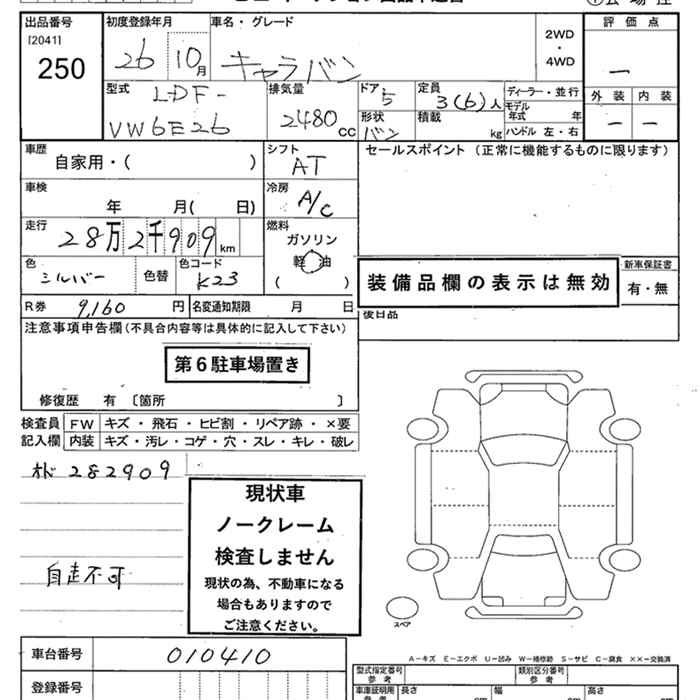 出品番号 初度登録年月 車名・グレード 評価点
[2041]
250 26 10月 キャラバン 2WD・4WD ー
型式 LDF-VW6E26 排気量 2480cc ドア 5 形状 バン 定員 3(6)人 積載 kg ディーラー・並行 モデル年式 年 ハンドル 左・右 外装 ー 内装 ー
車歴 自家用・( ) シフト AT セールスポイント (正常に機能するものに限ります)
車検 年 月( 日) 冷房 A/C
走行 28万2千909km 燃料 ガソリン 軽油 ( )
色 シルバー 色替 色コード K23
装備品欄の表示は無効 新車保証書 有・無
R券 9,160円 名変通知期限 月 日 後日品
注意事項申告欄(不具合内容等は具体的に記入して下さい)
第6駐車場置き
修復歴 有 〔箇所 〕
検査員記入欄 FW キズ・飛石・ヒビ割・リペア跡・×要
内装 キズ・汚レ・コゲ・穴・スレ・キレ・破レ
282909
現状車
ノークレーム
検査しません
自走不可
現状の為、不動車になる
場合もありますので
ご注意ください。
スペア
車台番号 010410
A-キズ E-エクボ U-凹み W-補修跡 S-サビ C-腐食 XX-交換済
登録番号
型式指定番号 参考 類別区分番号 参考
車庫証明用 長さ cm 幅 cm 高さ cm